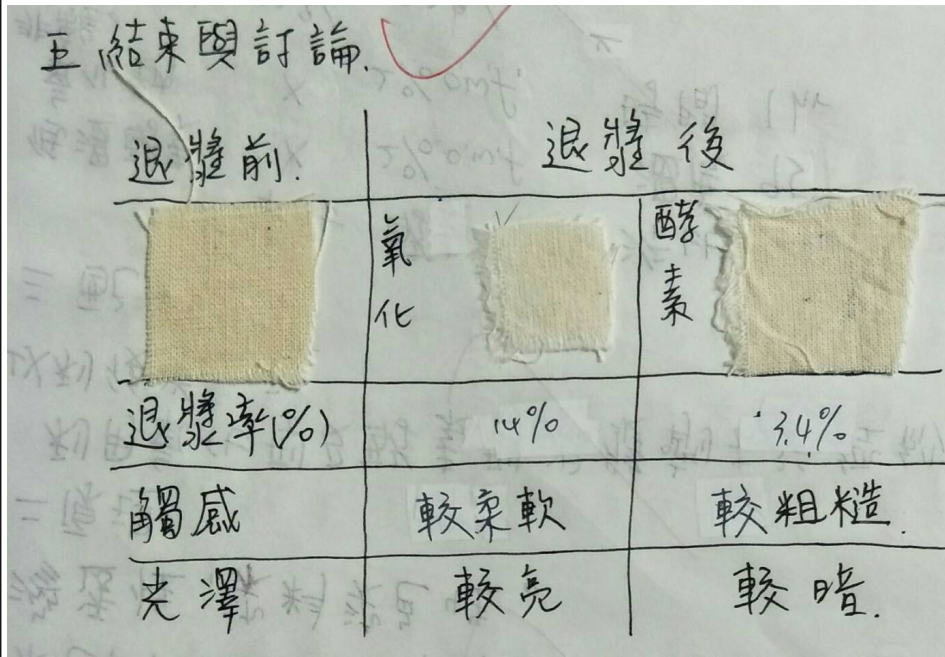 五、結束與討論.
退漿前. 退漿後
氧化 酵素
退漿率(%) 14% 3.4%
觸感 較柔軟 較粗糙.
光澤 較亮 較暗.